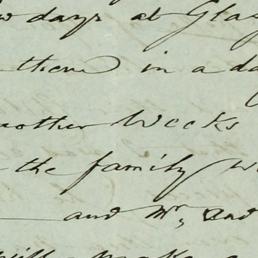 days at Glas
them in a da
another Weeks
the family w
and Mr, and